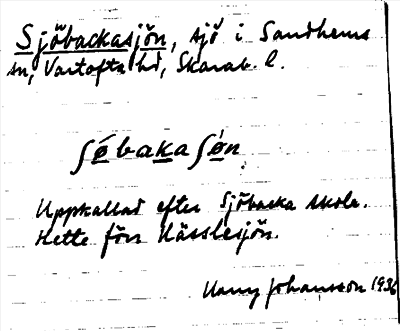 Sjöbackasjön, sjö i Sandhems
sn, Vartofta hd, Skarab. l.
ʃöbakaʃön
Uppkallad efter Sjöbacka skola.
Hette förr Hässlesjön.
Johansson 1936